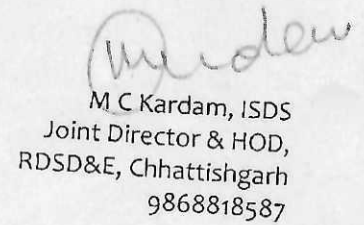 M C Kardam, ISDS
Joint Director & HOD,
RDSD&E, Chhattishgarh
9868818587